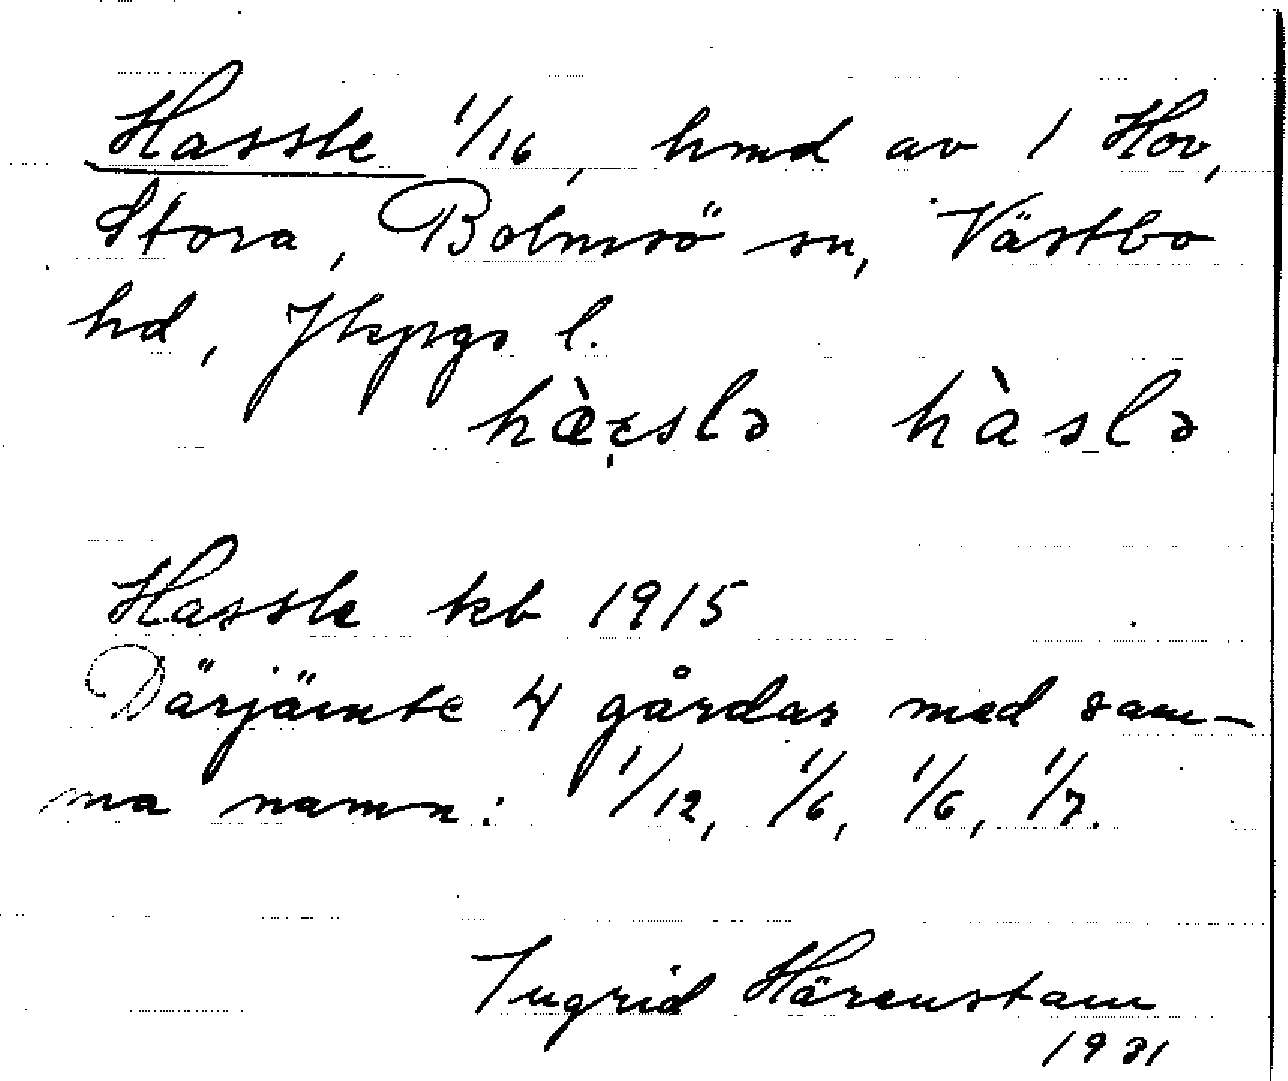 Hassle 1/16, hmd av 1 Hov,
Stora, Bolmsö sn, Västbo
hd, Jkpgs l.
hæ̀ɛslə hàslə
Hassle kb 1915
Därjämte 4 gårdar med sam-
ma namn: 1/12, 1/6, 1/6, 1/7.
Ingrid Härenstam
1931